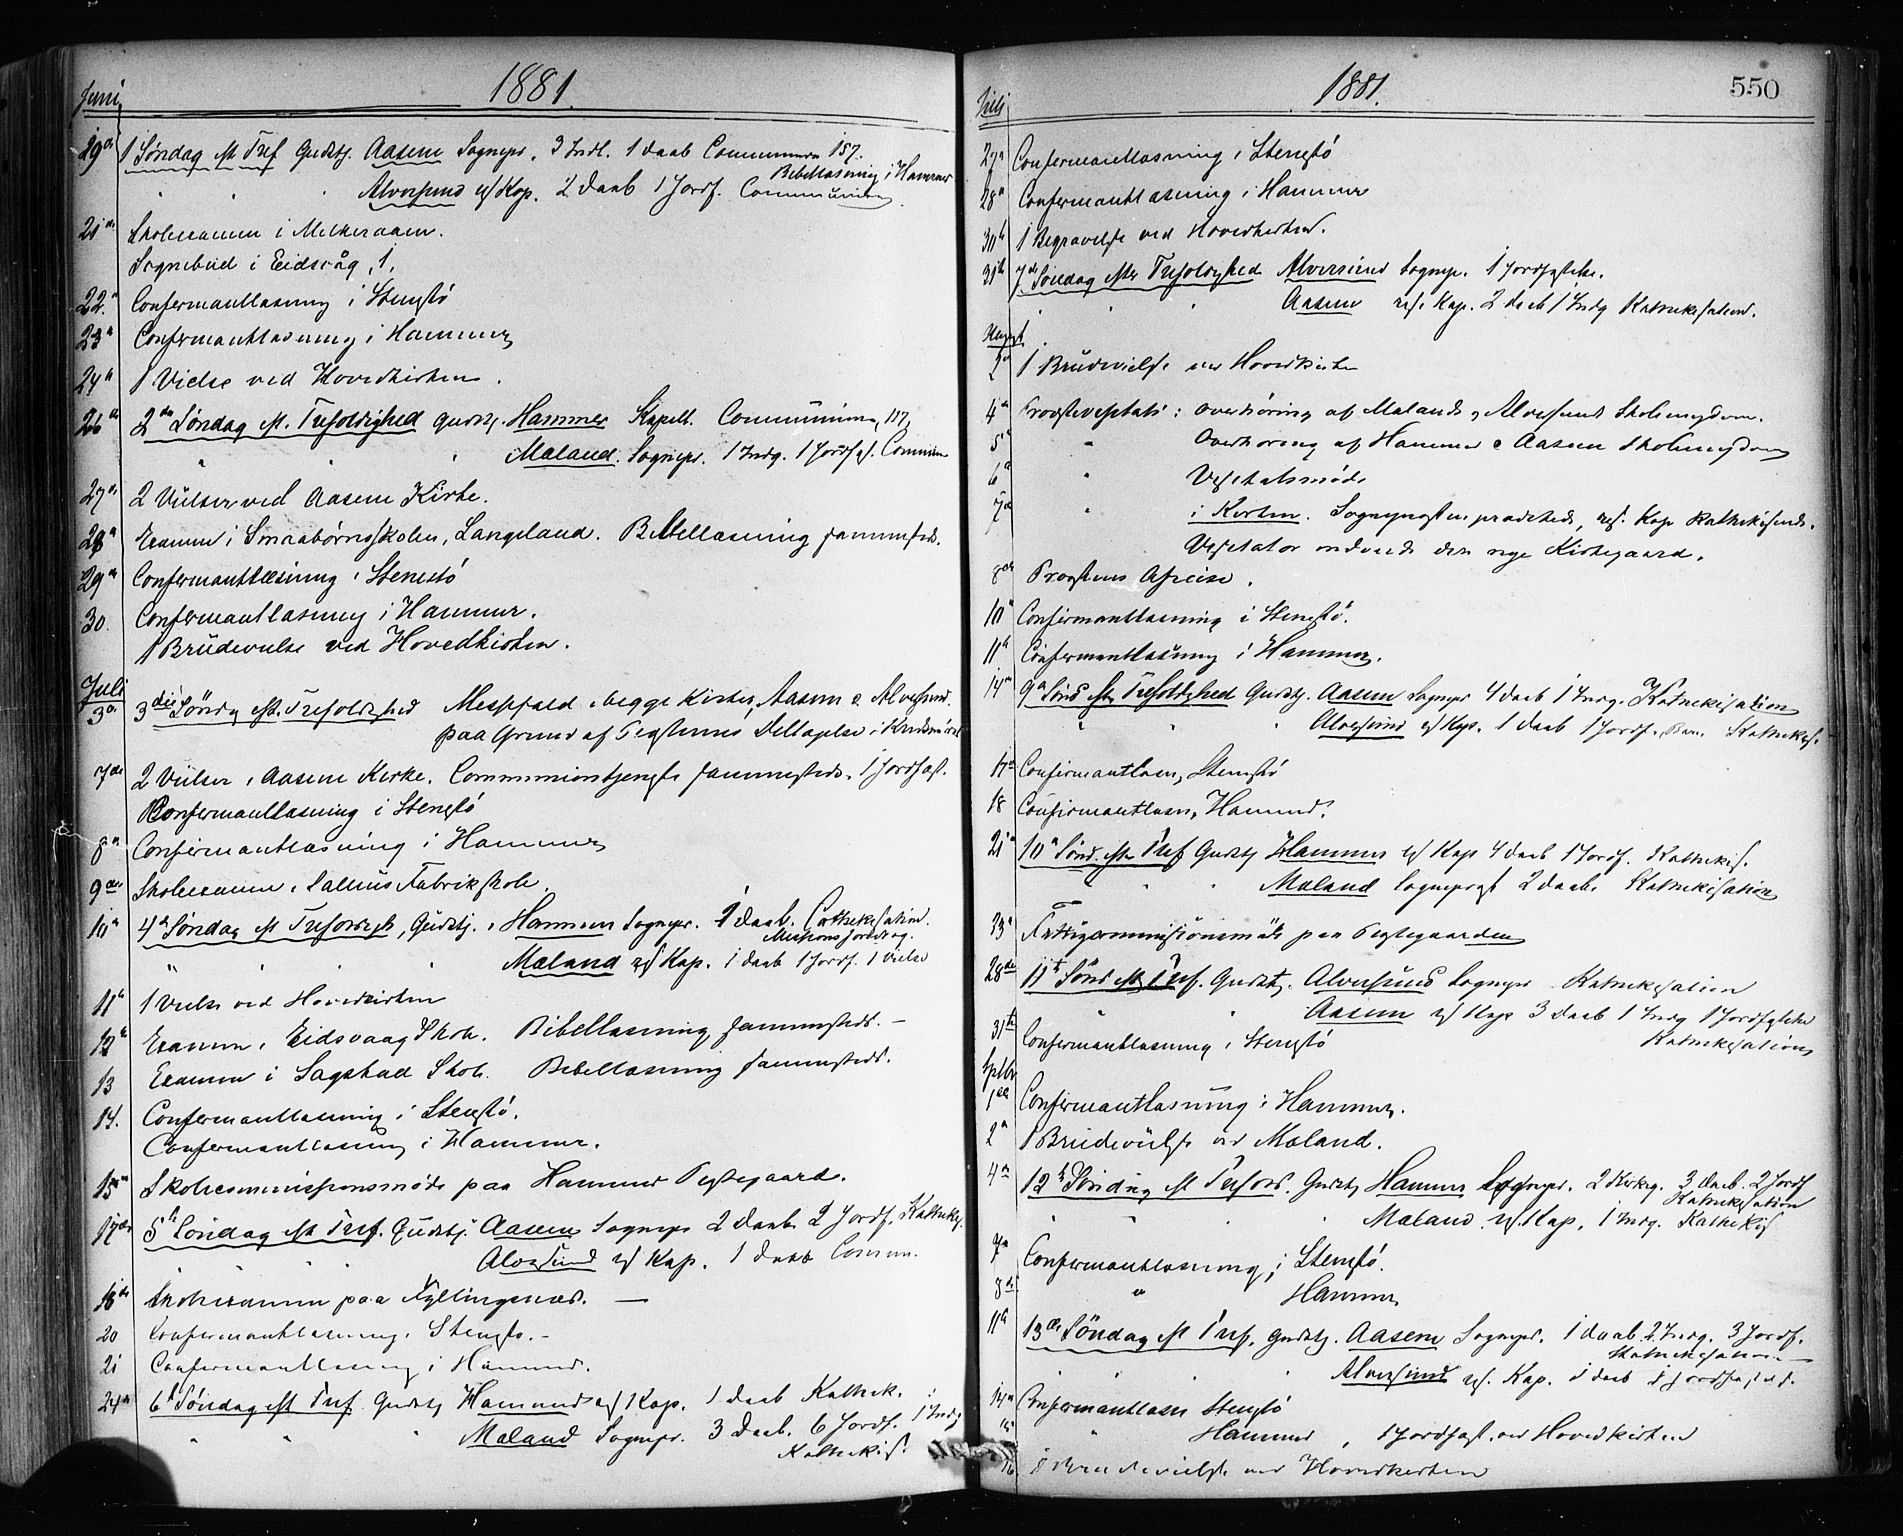 Juni 1881.
29de 1 Søndag eft Tref Gudstj. Aasene Sognepr. 3 Indl. 1 Daab Communion 157.
Bibellæsning i Hammer
" " Alversund resf Kap. 2 Daab 1 Jordf. Communion
21de Skoleexamen i Melkeraaen.
Sognebud i Eidsvåg, 1.
22. Confirmantlæsning i Stenstö
23 Confirmantlæsning i Hammer
24 1 Vielse ved Hovedkirken.
26de 2den Søndag eft. Trefoldighed Gudstj. Hammer Kapell. Communion 117,
" " " Mæland. Sognepr. 1 Indg. 1 Jordf. Commun
27de 2 Vielser ved Aasene Kirke.
28 Examen i Smaabørnsskolen, Langeland. Bibellæsning sammesteds.
29de Confirmantlæsning i Stenstö
30. Confirmantlæsning i Hammer.
1 Brudevielse ved Hovedkirken.
Juli
3d 3die Sønd eft. Trefoldighed Messefald i begge Kirker, Aasene & Alversund
paa Grund af Presternes Deltagelse i
7de 2 Vielser i Aasene Kirke. Communiontjeneste sammesteds. 1 Jordfæst.
Confirmantlæsning i Stenstö
8 Confirmantlæsning i Hammer
9de Skoleexamen i Salhus Fabrikskole.
10 4de Søndag eft Trefoldigh, Gudstj. i Hammer Sognepr. 1 Daab. Cathekisation.
Missionsforedrag.
" " Mæland resf Kap. 1 Daab 1 Jordf. 1 Vielse
11 1 Vielse ved Hovedkirken
12 Examen i Eidsvaag Skole. Bibellæsning sammesteds. —
13 Examen i Sagstad Skole. Bibellæsning sammesteds.
14. Confirmantlæsning i Stenstö.
Confirmantlæsning i Hammer.
15 Skolecommissionsmøde paa Hammer Prestegaard.
17de 5te Søndag eft Tref. Gudstj. Aasene Sognepr 2 Daab 2 Jordf. Kathekis.
Alversund resf Kap. 1 Daab Comm.
18de Skoleexamen paa Kyllingsnæs. —
20 Confirmantlæsning i Stenstö. —
21 Confirmantlæsning i Hammer.
24 6te Søndag eft Tref Gudstj Hammer resf Kap. 1 Daab Kathek.
" " " Mæland Sognepr. 3 Daab. 6 Jordf. 1 Indg
Kathekis.
Juli 1881. 550
27 Confirmantlæsning i Stenstö
28 Confirmantlæsning i Hammer
30 1 Begravelse ved Hovedkirken.
31te 7de Søndag efter Trefoldighed Alversund Sognepr. 1 Jordfæstelse.
" " " Aasene resf. Kap. 2 Daab 1 Indg Kathekisation.
August
2 1 Brudevielse ved Hovedkirken
4 Provstevisitats: Overhøring af Mælands og Alversunds Skoleungdom.
5 " Overhøring af Hammer & Aasene Skoleungdom
6 " Visitatsmøde
7 " i Kirken. Sogneprosten prædikede, resf. Kap Kathekiserede.
Visitator indviede den nye Kirkegaard.
8de Provstens Afreise.
10 Confirmantlæsning i Stenstö.
11 Confirmantlæsning i Hammer.
14 9de Sønd eft Trefoldighed Gudstj. Aasene Sognepr 4 Daab 1 Indg. Kathekisation
" " Alversund resf Kap. 1 Daab 1 Jordf. Kathekis.
17 Confirmantlæsn, Stenstö
18 Confirmantlæsn, Hammer.
21 10de Sønd. eft Tref Gudstj Hammer resf Kap 4 Daab 1 Jordf. Kathekis.
" " Mæland Sogneprest 2 Daab. Kathekisation
23 Fattigcommissionsmøde paa Prestegaarden
28de 11te Sønd eft Tref. Gudstj. Alversund Sognepr Kathekisation
" " Aasene resf Kap 3 Daab 1 Indg 1 Jordfæstelse
Kathekisation
31te Confirmantlæsning i Stenstö
Sptbr
1 Confirmantlæsning i Hammer.
2 1 Brudevielse ved Mæland.
4 12te Søndag eft Trefold. Gudstj Hammer Sognepr. 2 Kirkeg. 3 Daab. 2 Jordf
Kathekisation
" " " Mæland resf. Kap, 1 Indg. Kathekis
7 Confirmantlæsning i Stenstö.
8de " Hammer
11 13de Søndag eft Tref. Gudstj. Aasene Sognepr. 1 Daab. 2 Indg. 3 Jordf.
Kathekisation —
" " Alversund resf. Kap. 1 Daab 1 Jordfæstels.
14 Confirmantlæsn Stenstö
15 " Hammer, 1 Jordfæst. ved Hovedkirken
16 Brudevielse ved Hovedkirken